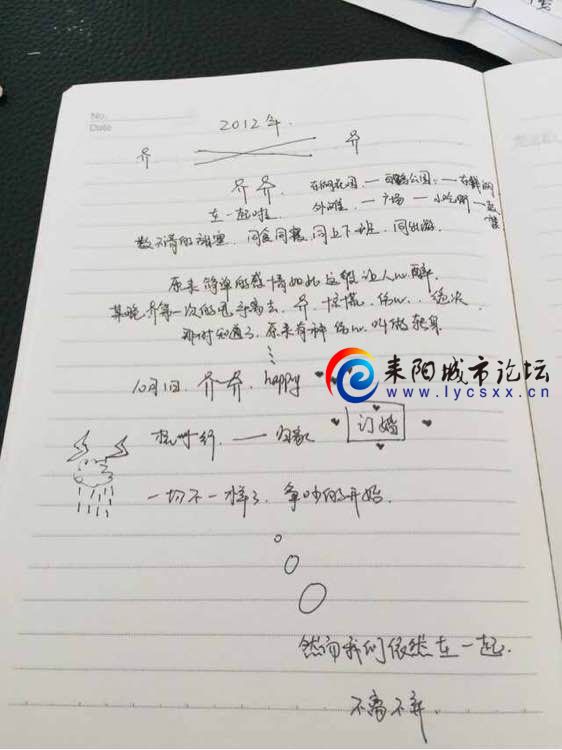 No.
Date
2012年.
乔 乔
乔乔. 在一起啦
外滩. — 广场 — 小吃街 — 起
数不清的甜蜜. 同食同寝. 同上下班. 同出游.
原来简单的感情如此这般让人心醉.
某晚乔第一次的甩手离去. 乔. 惊慌. 伤心.
那时知道了. 原来有种伤心叫做转身
10月1日. 乔乔. happy
杭州行. — 回家 订婚
一切不一样了. 争吵的开始.
然而我们依然在一起.
不离不弃.
耒阳城市论坛
www.lycsxx.cn